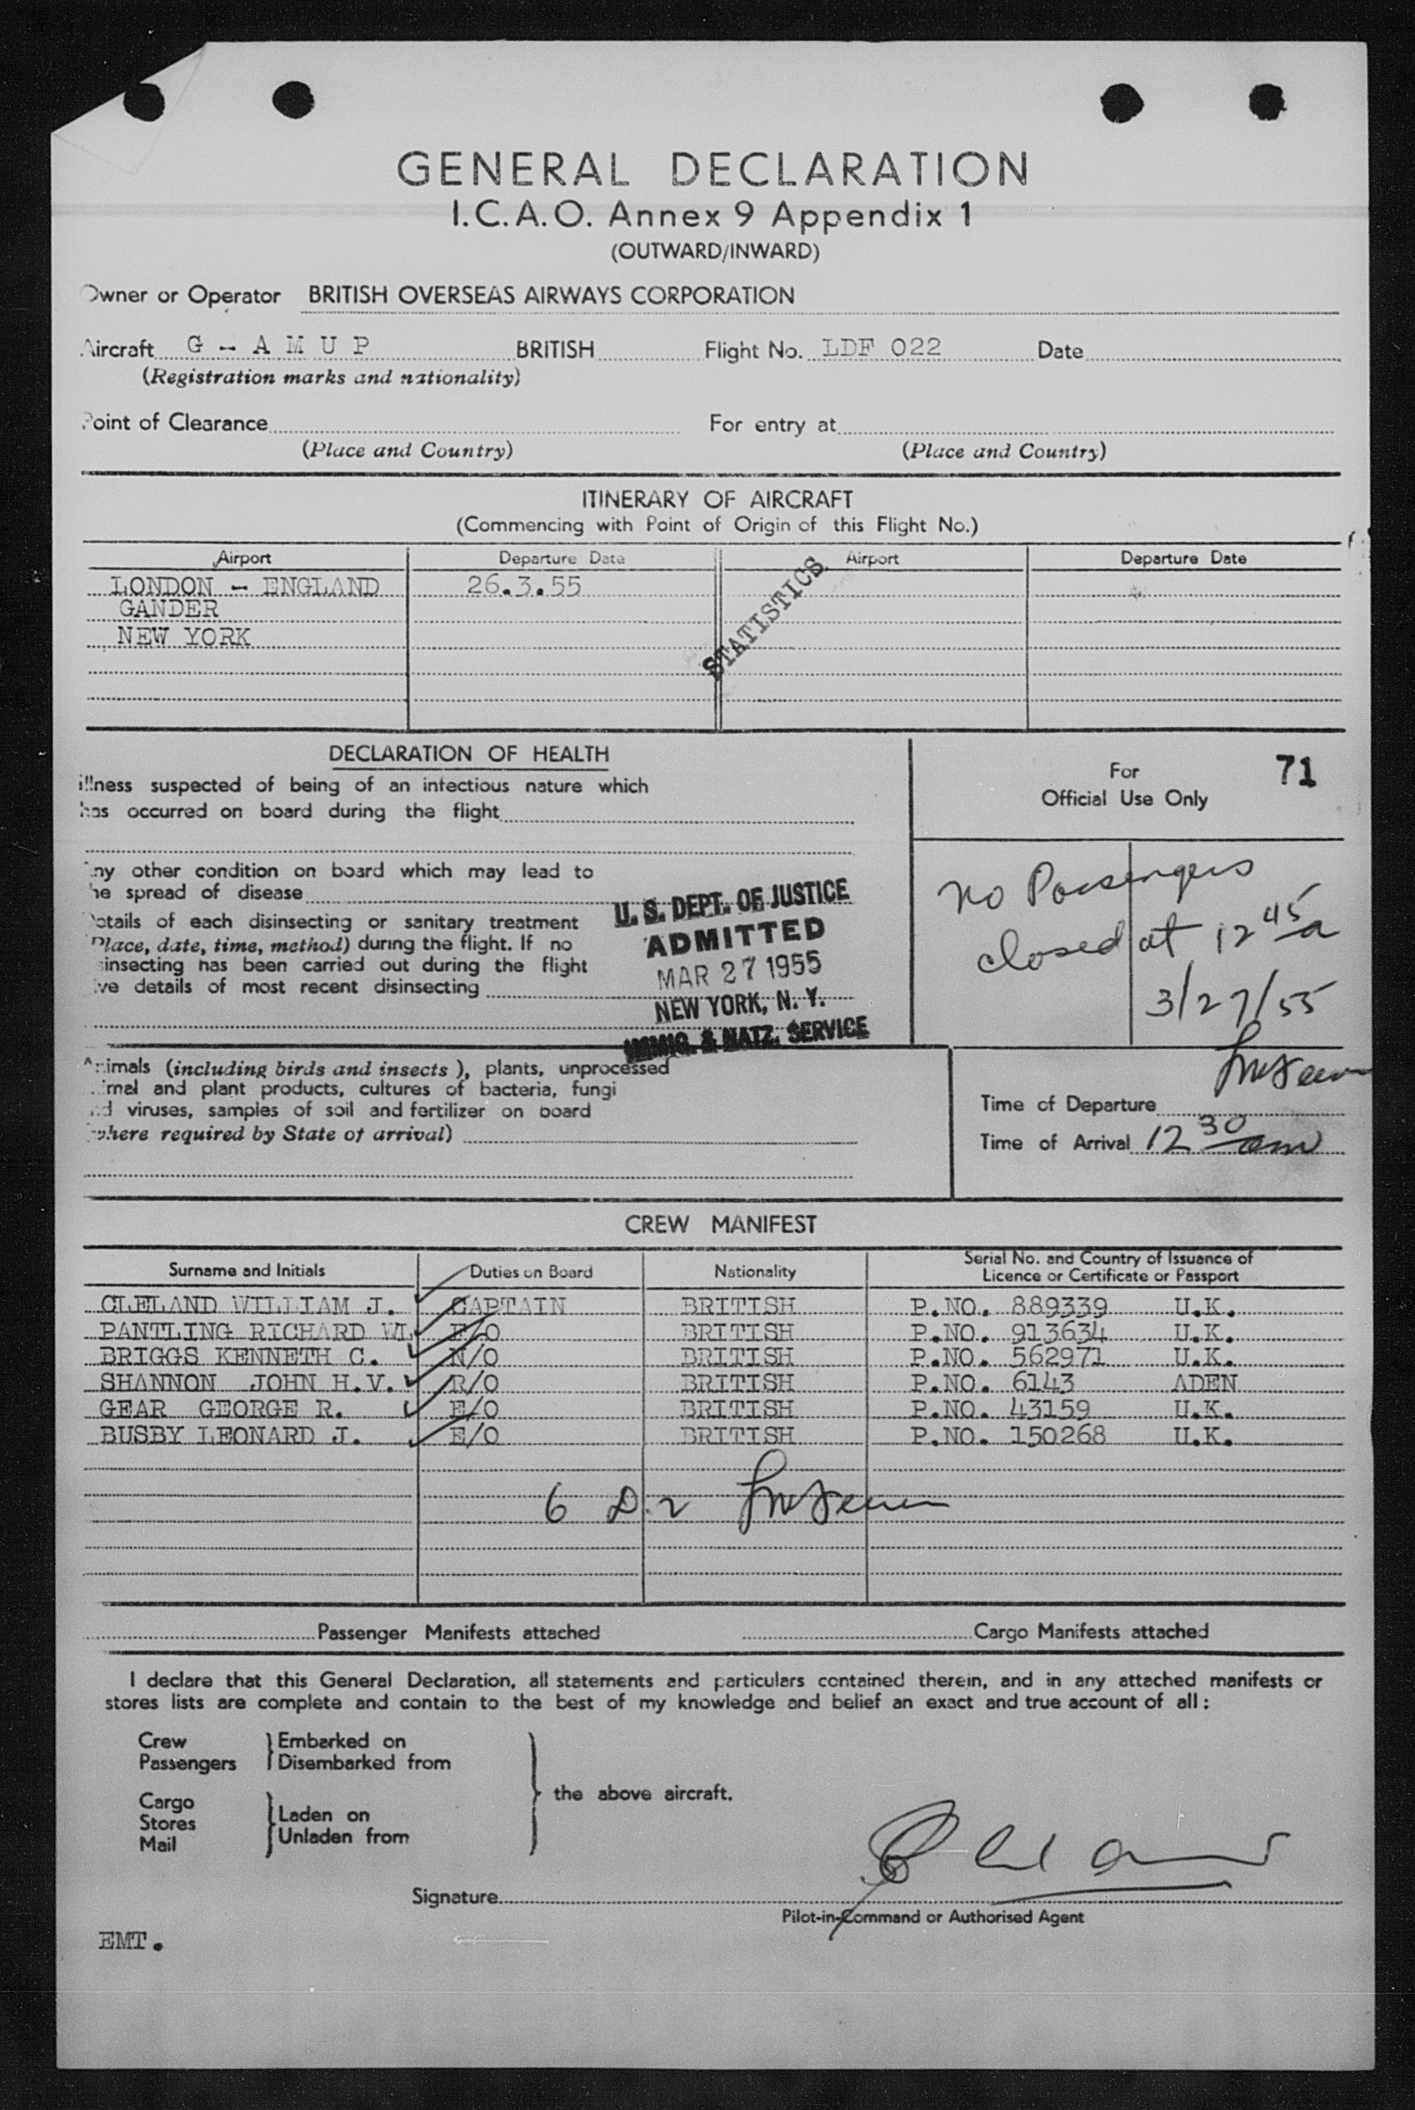 GENERAL DECLARATION
I.C.A.O. Annex 9 Appendix 1
(OUTWARD/INWARD)
Owner or Operator BRITISH OVERSEAS AIRWAYS CORPORATION
Aircraft G - A M U P BRITISH Flight No. LDF 022 Date
(Registration marks and nationality)
Point of Clearance For entry at
(Place and Country) (Place and Country)
ITINERARY OF AIRCRAFT
(Commencing with Point of Origin of this Flight No.)
Airport Departure Date Airport Departure Date
LONDON - ENGLAND 26.3.55
GANDER
NEW YORK
STATISTICS
DECLARATION OF HEALTH
illness suspected of being of an infectious nature which
has occurred on board during the flight
Any other condition on board which may lead to
the spread of disease
Details of each disinsecting or sanitary treatment
(Place, date, time, method) during the flight. If no
disinsecting has been carried out during the flight
give details of most recent disinsecting
U. S. DEPT. OF JUSTICE
ADMITTED
MAR 27 1955
NEW YORK, N. Y.
IMMIG. & NATZ. SERVICE
For 71
Official Use Only
No Passengers
closed at 12 45 a
3/27/55
Animals (including birds and insects), plants, unprocessed
animal and plant products, cultures of bacteria, fungi
and viruses, samples of soil and fertilizer on board
(where required by State of arrival)
Time of Departure
Time of Arrival 12 30 am
CREW MANIFEST
Surname and Initials Duties on Board Nationality Serial No. and Country of Issuance of Licence or Certificate or Passport
CLELAND WILLIAM J. CAPTAIN BRITISH P.NO. 889339 U.K.
PANTLING RICHARD WL F/O BRITISH P.NO. 913634 U.K.
BRIGGS KENNETH C. N/O BRITISH P.NO. 562971 U.K.
SHANNON JOHN H.V. R/O BRITISH P.NO. 6143 ADEN
GEAR GEORGE R. E/O BRITISH P.NO. 43159 U.K.
BUSBY LEONARD J. E/O BRITISH P.NO. 150268 U.K.
6 D.2
Passenger Manifests attached Cargo Manifests attached
I declare that this General Declaration, all statements and particulars contained therein, and in any attached manifests or
stores lists are complete and contain to the best of my knowledge and belief an exact and true account of all :
Crew Embarked on
Passengers Disembarked from
the above aircraft.
Cargo
Stores Laden on
Mail Unladen from
Signature
Pilot-in-Command or Authorised Agent
EMT.